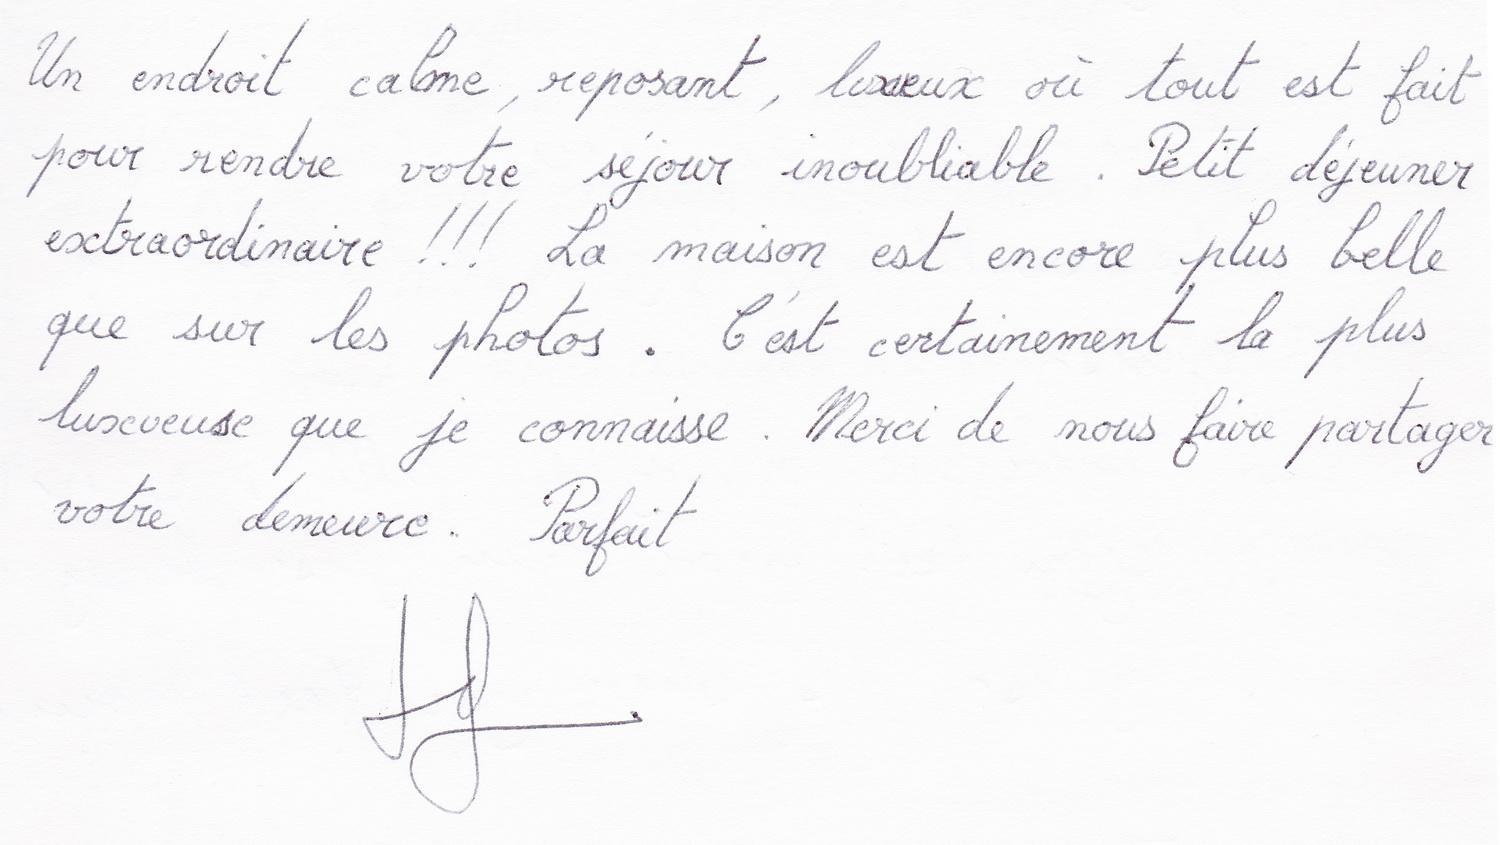 Un endroit calme, reposant, luxueux où tout est fait
pour rendre votre séjour inoubliable. Petit déjeuner
extraordinaire !!! La maison est encore plus belle
que sur les photos. C'est certainement la plus
luxueuse que je connaisse. Merci de nous faire partager
votre demeure. Parfait